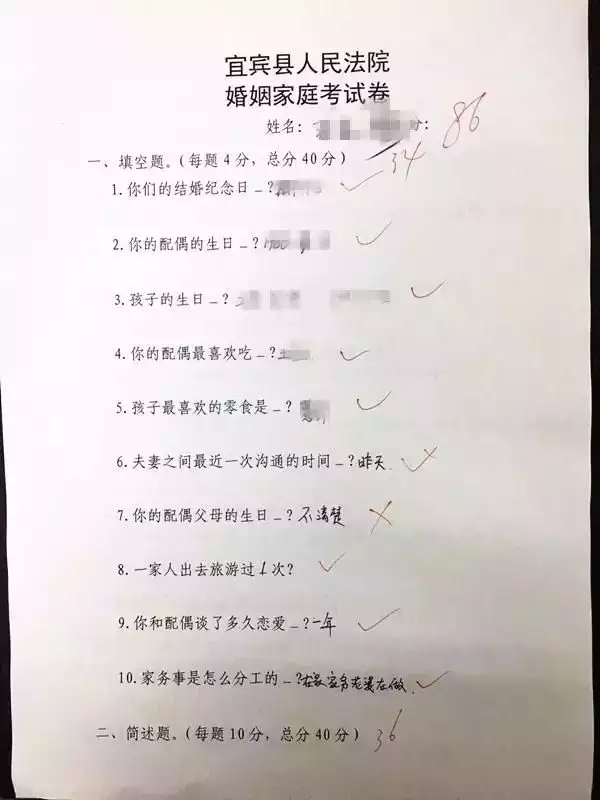 宜宾县人民法院
婚姻家庭考试卷
姓名: 分: 86
一、填空题。(每题4分,总分40分) 34
1.你们的结婚纪念日_?
2.你的配偶的生日_?
3.孩子的生日_?
4.你的配偶最喜欢吃_?
5.孩子最喜欢的零食是_?
6.夫妻之间最近一次沟通的时间_?昨天.
7.你的配偶父母的生日_?不清楚
8.一家人出去旅游过1次?
9.你和配偶谈了多久恋爱_?一年
10.家务事是怎么分工的_?在家家务老婆在做.
二、简述题。(每题10分,总分40分) 36